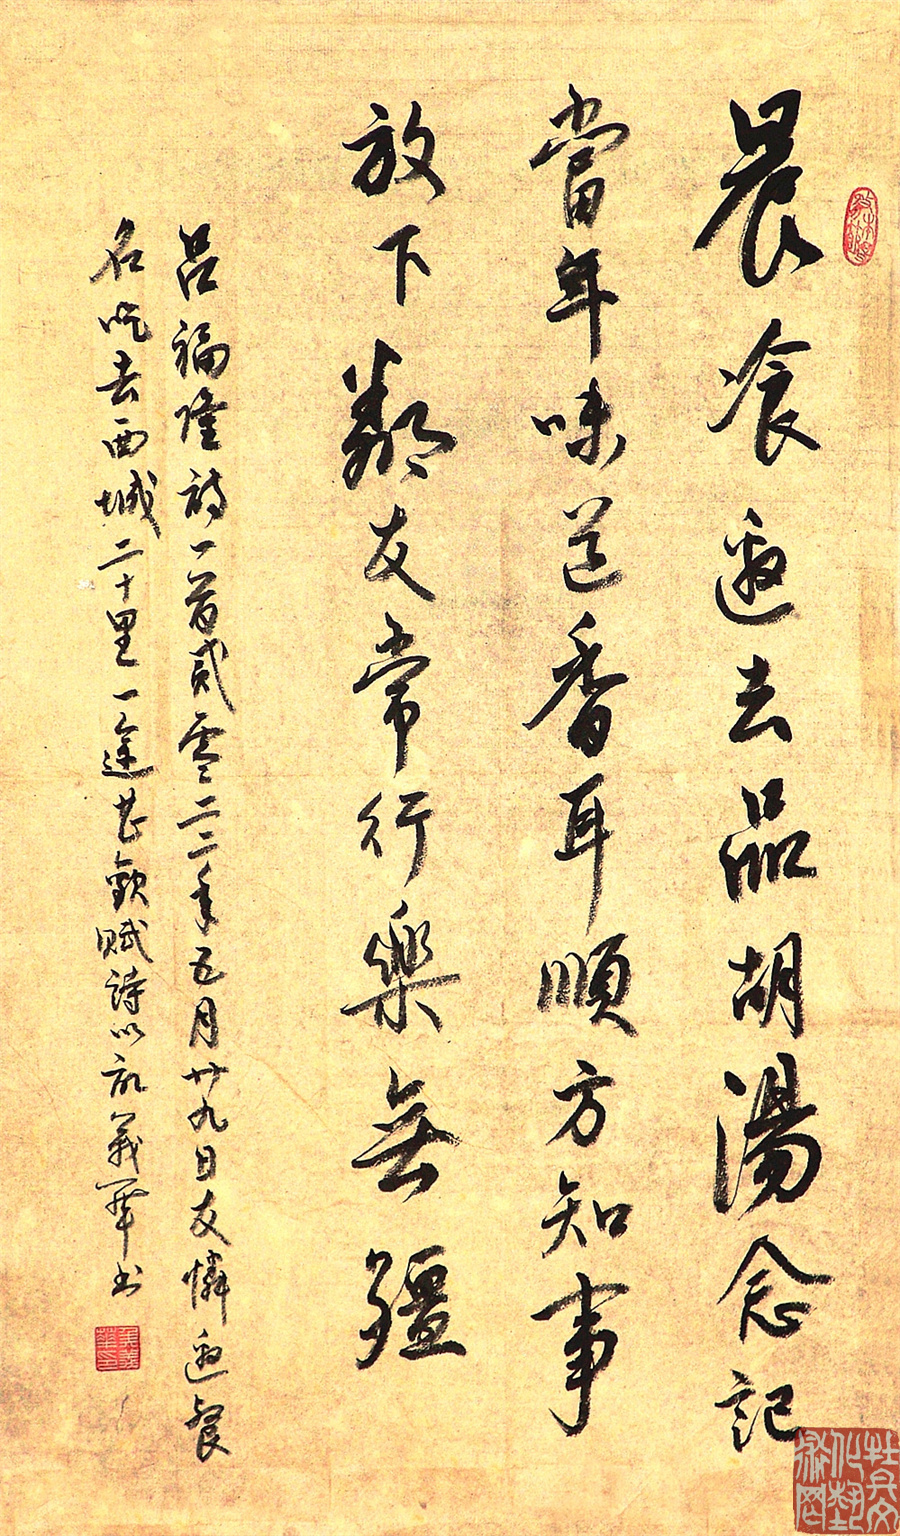 晨飡邀去品胡湯念記
當年味道香耳順方知事
放下鄰友常行樂無疆
呂福隆詩一首貳零二二年五月廿九日友憐邀餐
名吃去西城二十里一途甚歡賦詩以記義華书